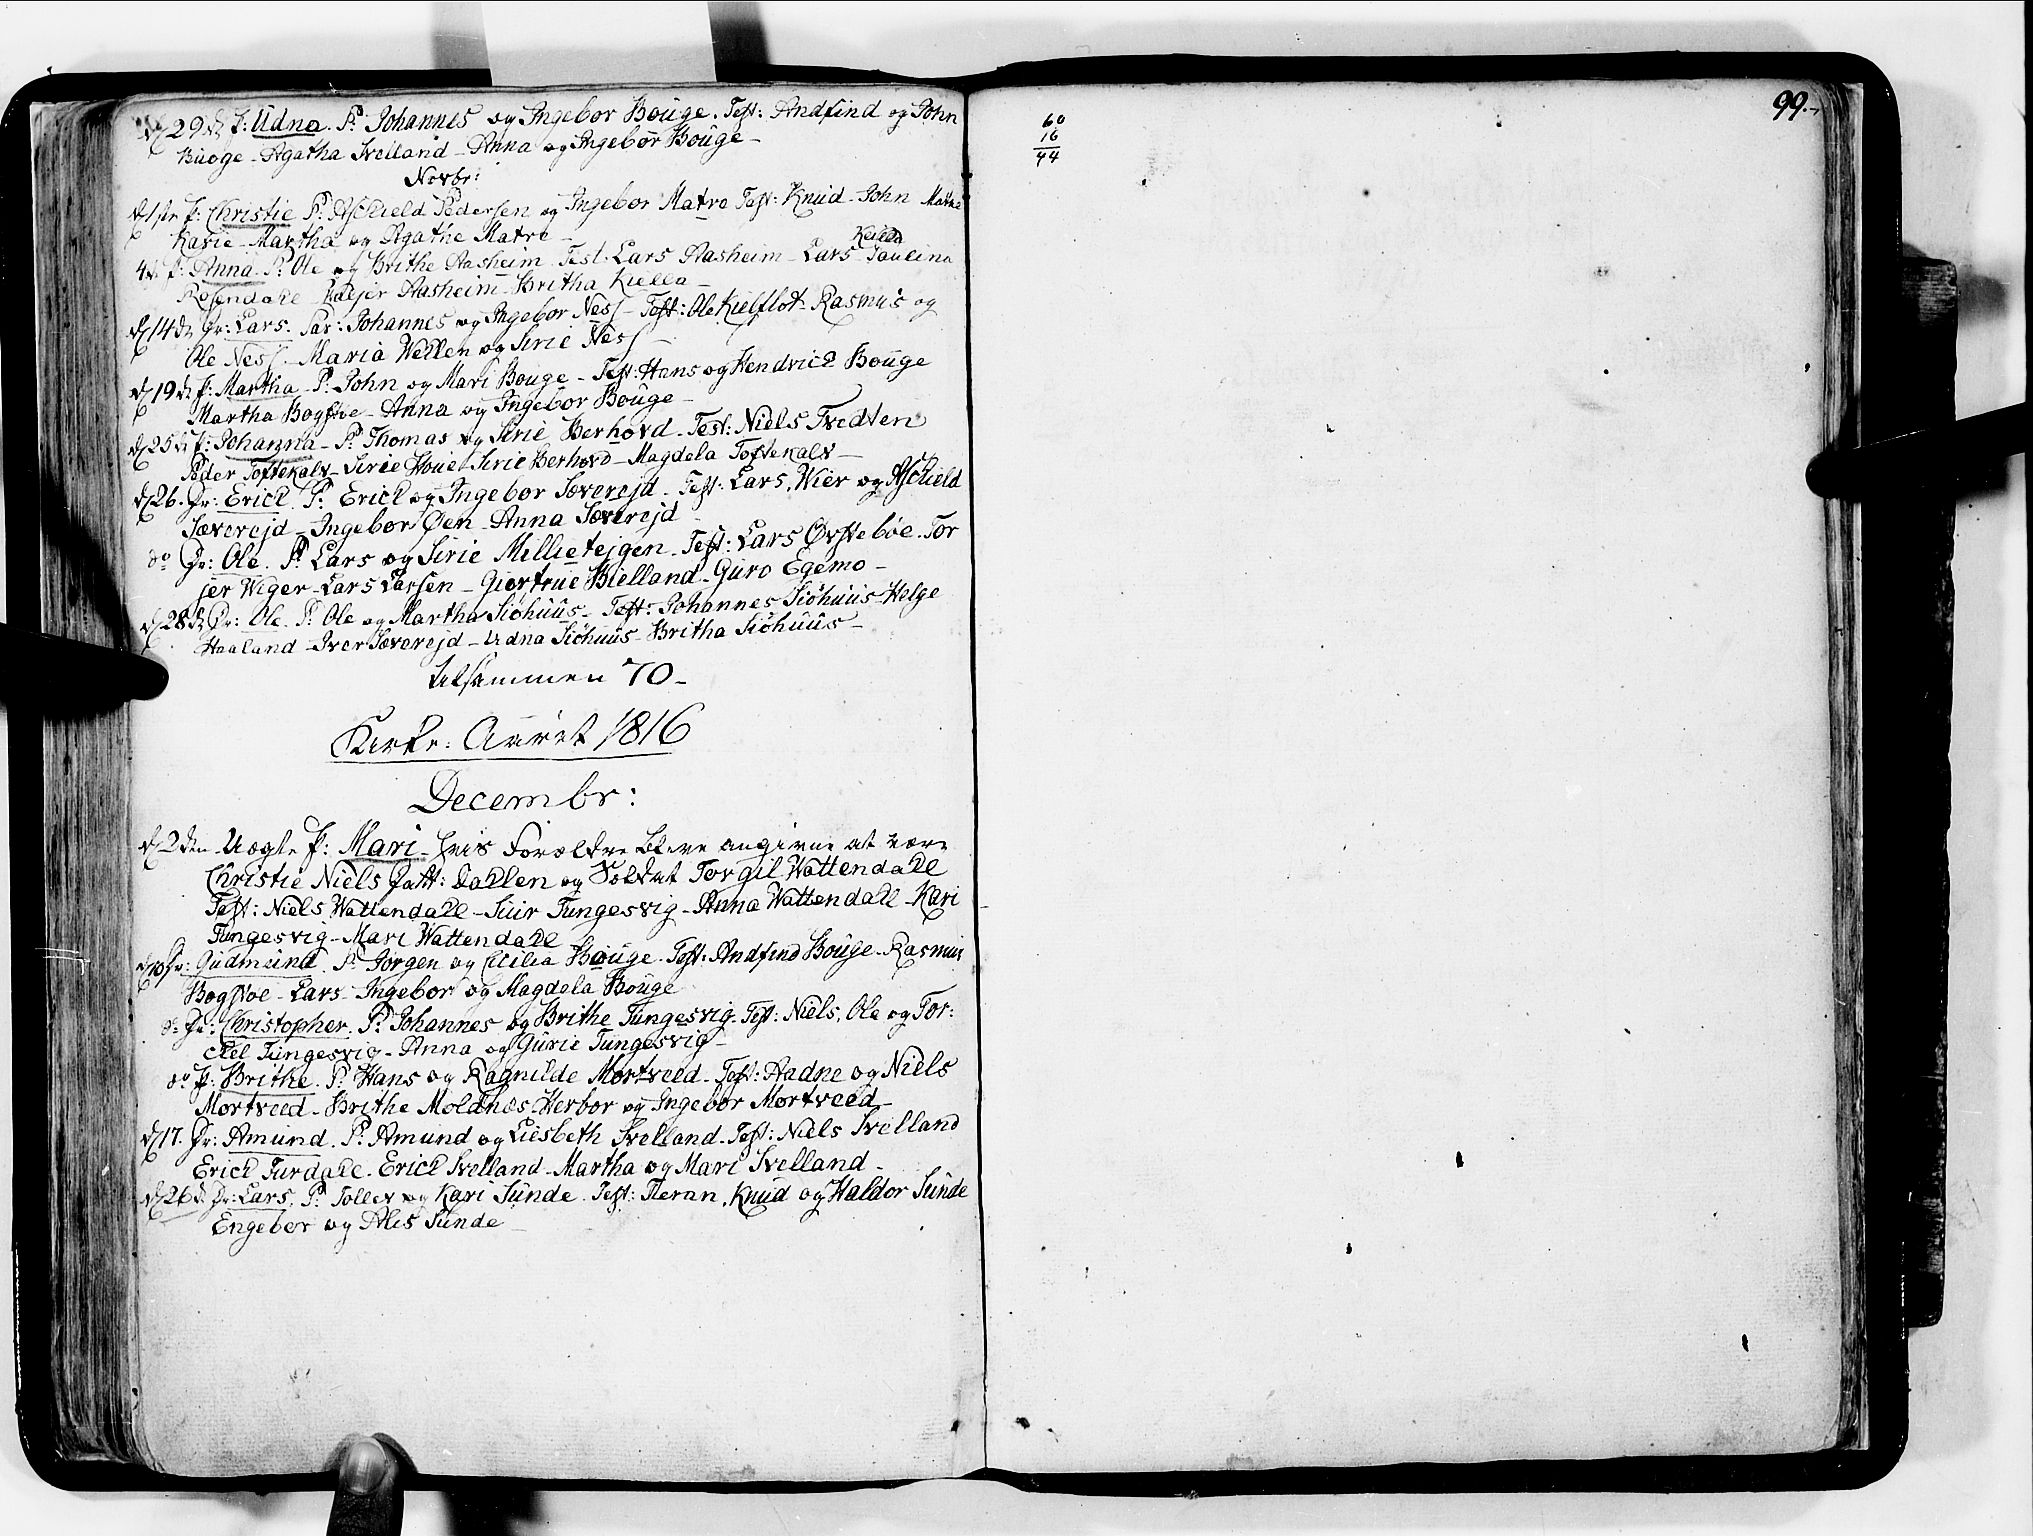 d 29de P: Udna. P: Johannes og Ingebor Bouge. Test: Andfind og John
Buoge - Agatha Svelland - Anna og Ingebor Bouge -
Novbr:
d 1ste P: Christie P: Aschield Pedersen og Ingebor Matre Test: Knud - John Matre
Karie - Martha og Agathe Matre -
4de P: Anna P: Ole og Brithe Aasheim Test: Lars Aasheim - Lars Kiella Paulina
Rosendall - Aasheim - Britha Kiella -
d 14de Dr: Lars. Par: Johannes og Ingebor Ness - Test: Ole Kielflot - Rasmus og
Ole Ness - Maria Wellen og Sirie Ness -
d 19de P: Martha - P: John og Mari Bouge - Test: Hans og Hendrick Bouge
Martha Bogstoe - Anna og Ingebor Bouge -
d 25de P: Johanna - P: Thomas og Sirie Berhovd - Test: Niels Tvedten
Peder Toftekalv - Sirie Houe - Sirie Berhovd - Magdela Toftekalv -
d 26. Dr: Erick. P: Erick og Ingebor Sæverejd - Test: Lars, Wier og Aschield
Sæverejd - Ingebor Øen - Anna Sæverejd -
do Dr: Ole. P: Lars og Sirie Millietejgen - Test: Lars Øvsteböe - Tor
jer Wiger - Lars Larsen - Giørtrue Hielland - Guro Egemo -
d 28de Dr: Ole. P: Ole og Martha Siöhuus - Test: Johannes Siöhuus - Helge
Haaland - Iver Sæverejd - Udna Siöhuus - Britha Siöhuus -
tilsammen 70 -
Kirke: Aaret 1816
Decembr:
d 2den Uægte P: Mari - hvis Forældre bleve angivne at være
Christie Niels Datt: Dallen og Soldat Torgil Wattendall
Test: Niels Wattendall - Siur Tungesvig - Anna Wattendall - Kari
Tungesvig - Mari Wattendall
d 10 Dr: Gudmund. P: Jörgen og Cicilia Bouge - Test: Andfind Bouge - Rasmus
Bogstoe - Lars - Ingebor og Magdela Bouge
do Dr: Christopher. P: Johannes og Brithe Tungesvig - Test: Niels, Ole og Tor:
ckel Tungesvig - Anna og Gurie Tungesvig -
do P: Brithe. P: Hans og Ragnilde Mortveed - Test: Aadne og Niels
Mortveed - Brithe Moldnæs - Herbor og Ingebor Mortveed -
d 17. Dr: Amund. P: Amund og Liesbeth Svelland - Test: Niels Svelland
Erick Furdall - Erick Svelland - Martha og Mari Svelland -
d 26de Dr: Lars. P: Tollev og Kari Sunde. Test: Tieran, Knud og Haldor Sunde
Engebor og Ales Sunde -
99.
60
16
44